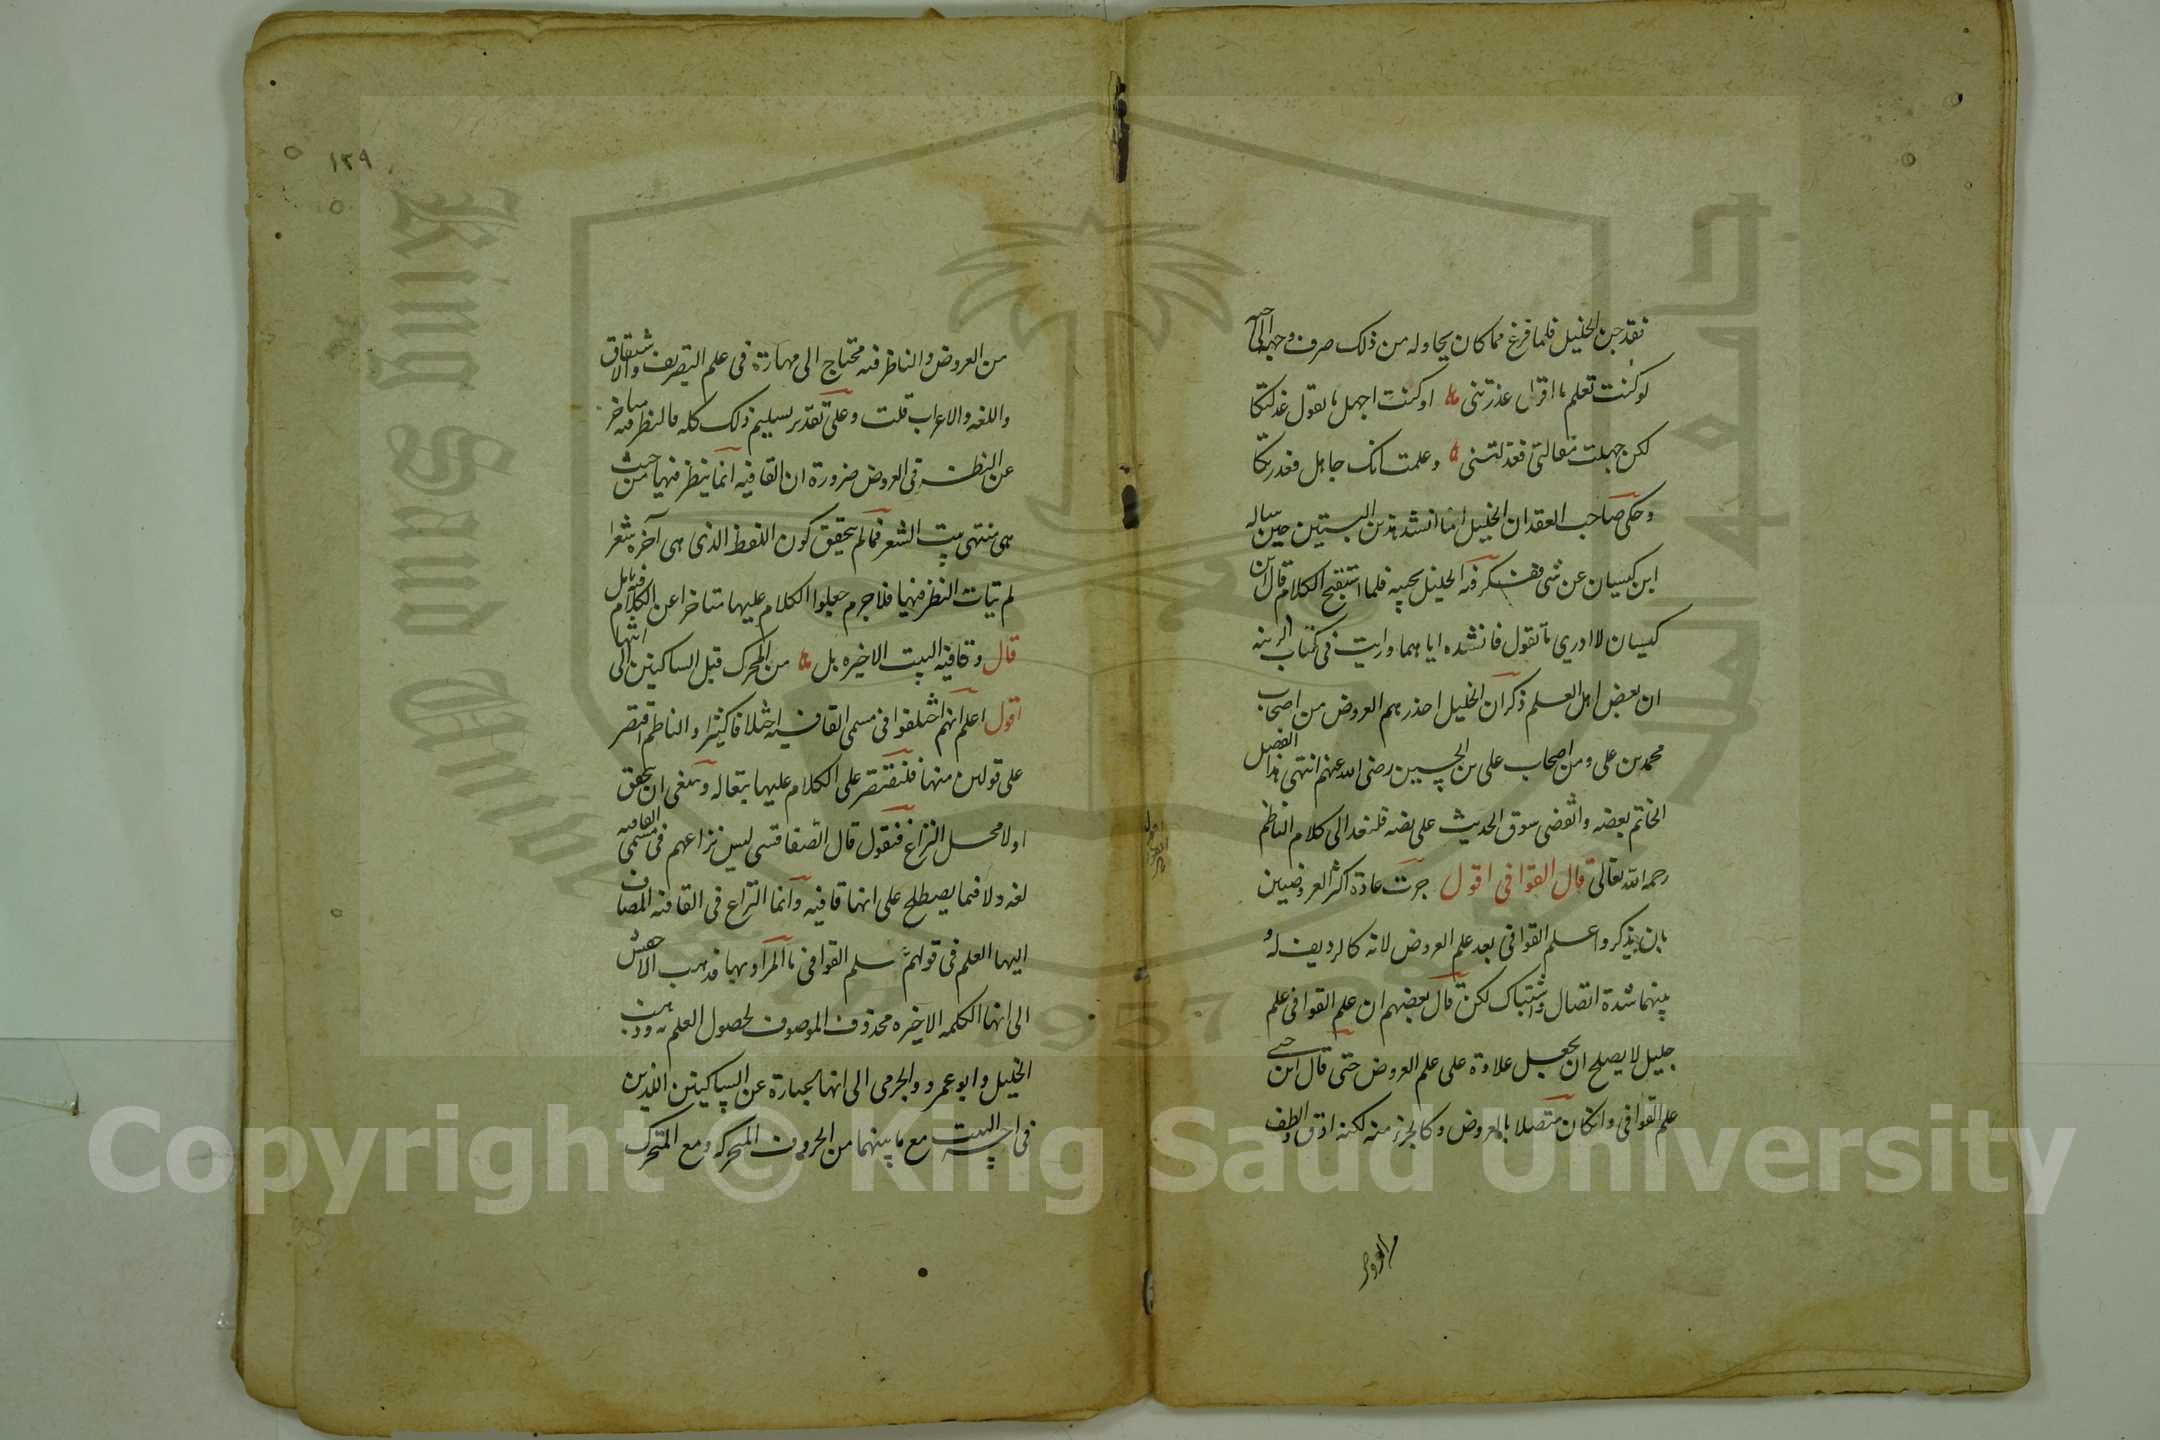 فقد جن الخليل فلما فرغ مما كان يحاوله من ذلك صرف وجهه الى
لو كنت تعلم ما اقول عذرتنى او كنت اجهل ما تقول عذلتكا
لكن جهلت مقالتى فعذلتنى وعلمت انك جاهل فعذرتكا
وحكى صاحب العقد ان الخليل انما انشد هذين البيتين حين ساله
ابن كيسان عن شى ففكر فيه الخليل يجيبه فلما استفتح الكلام قال ابن
كيسان لا ادرى ما تقول فانشده اياهما ورايت فى كتاب الزينه
ان بعض اهل العلم ذكر ان الخليل اخذ رسم العروض من اصحاب
محمد بن على ومن اصحاب على بن الحسين رضى الله عنهم انتهى هذا الفصل
الخاتم بعضه واقتضى سوق الحديث على نصه فلنعد الى كلام الناظم
رحمه الله تعالى قال القوافى اقول جرت عادة اكثر العروضيين
بان يذكروا علم القوافى بعد علم العروض لانه كالرديف له و
بينهما شدة اتصال واشتباك لكن قال بعضهم ان علم القوافى علم
جليل لا يصلح ان يجعل علاوة على علم العروض حتى قال ابن جنى
علم القوافى وان كان متصلا بالعروض وكالجزء منه لكنه ادق والطف
من العروض
١٢٩
من العروض والناظر فيه محتاج الى مهارة فى علم التصريف والاشتقاق
واللغه والاعراب قلت وعلى تقدير تسليم ذلك كله فالنظر فيه متاخر
عن النظر فى العروض ضرورة ان القافيه انما ينظر فيها من حيث
هى منتهى بيت الشعر فما لم يتحقق كون اللفظ الذى هى آخره شعرا
لم يتات النظر فيها فلا جرم جعلوا الكلام عليها متاخرا عن الكلام فيه تامل
قال وقافيه البيت الاخيره بل من المحرك قبل الساكنين الى انتها
اقول اعلم انهم اختلفوا فى مسمى القافيه اختلافا كثيرا والناظم اقتصر
على قولين منها فلنقتصر على الكلام عليهما بتعاله وينبغى ان يحقق
اولا محل النزاع فنقول قال الصفاقسى ليس نزاعهم فى مسمى القافيه
لغه ولا فيما يصطلح على انها قافيه وانما النزاع فى القافيه المضاف
اليها العلم فى قولهم علم القوافى ما المراد بها فذهب الاخفش
الى انها الكلمه الاخيره محذوف الموصوف لحصول العلم به وذهب
الخليل وابو عمرو والجرمى الى انها عبارة عن الساكنين اللذين
فى اخر البيت مع ما بينهما من الحروف المتحركه ومع المتحرك
Copyright © King Saud University
King Saud University
جامعة الملك سعود
1957